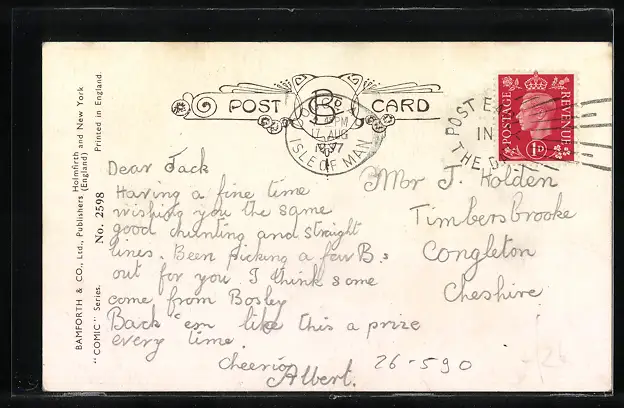 BAMFORTH & CO., Ltd., Publishers (England) Holmfirth and New York
"COMIC" Series. No. 2598 Printed in England.
POST CARD
17 AUG
ISLE OF MAN
POST E
IN
THE D
POSTAGE REVENUE
1D
Dear Jack
Having a fine time
wishing you the same
good hunting and straight
lines. Been picking a few B.s
out for you. I think some
come from Bosley
Back 'em like this a prize
every time.
Cheerio
Albert.
26-590
Mr J. Holden
Timbersbrooke
Congleton
Cheshire